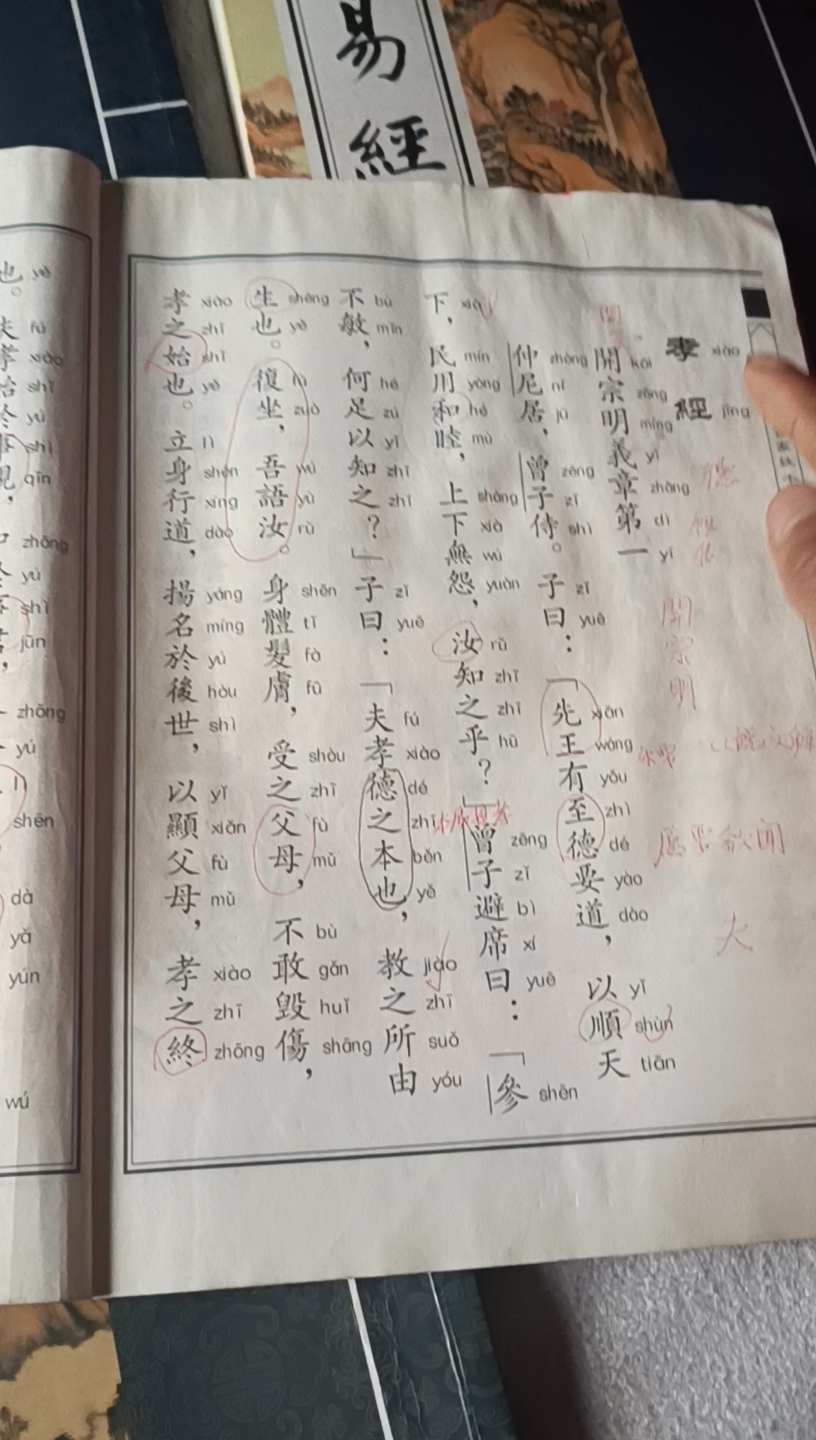 易經
孝經 xiào jīng
開宗明義章第一 kāi zōng míng yì zhāng dì yī
仲尼居，曾子侍。子曰：「先王有至德要道，以順天 zhòng ní jū zēng zǐ shì zǐ yuē xiān wáng yǒu zhì dé yào dào yǐ shùn tiān
下，民用和睦，上下無怨，汝知之乎？」曾子避席曰：「參 xià mín yòng hé mù shàng xià wú yuàn rǔ zhī zhī hū zēng zǐ bì xí yuē shēn
不敏，何足以知之？」子曰：「夫孝，德之本也，教之所由 bù mǐn hé zú yǐ zhī zhī zǐ yuē fú xiào dé zhī běn yě jiào zhī suǒ yóu
生也。復坐，吾語汝。身體髮膚，受之父母，不敢毀傷， shēng yě fù zuò wú yù rǔ shēn tǐ fà fū shòu zhī fù mǔ bù gǎn huǐ shāng
孝之始也。立身行道，揚名於後世，以顯父母，孝之終 xiào zhī shǐ yě lì shēn xíng dào yáng míng yú hòu shì yǐ xiǎn fù mǔ xiào zhī zhōng
也。 yě fú xiào shǐ yú shì qīn zhōng yú shì jūn zhōng yú lì shēn dà yǎ yún wú
開宗明